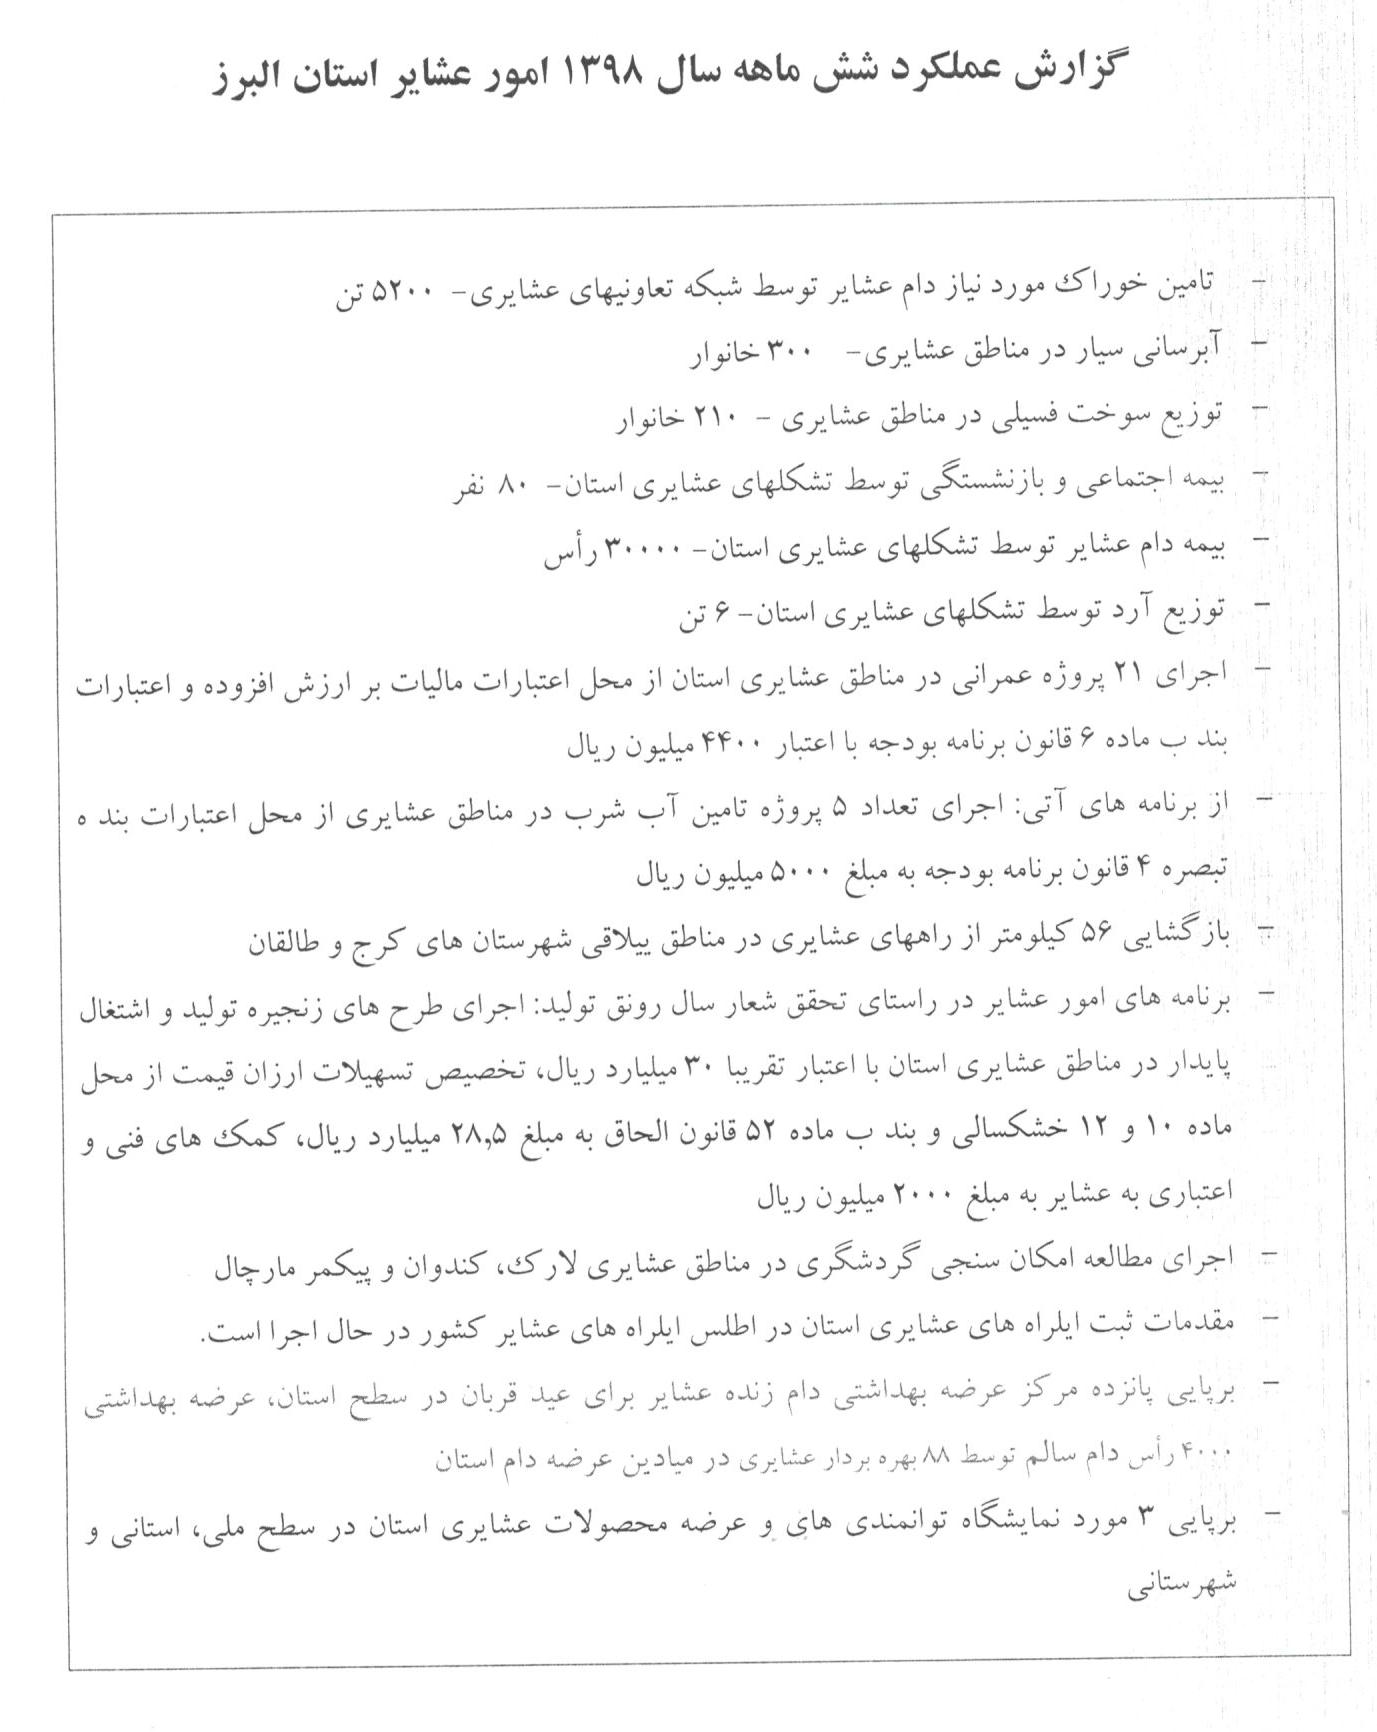 گزارش عملکرد شش ماهه سال ۱۳۹۸ امور عشایر استان البرز
- تامین خوراک مورد نیاز دام عشایر توسط شبکه تعاونیهای عشایری- ۵۲۰۰ تن
- آبرسانی سیار در مناطق عشایری- ۳۰۰ خانوار
- توزیع سوخت فسیلی در مناطق عشایری - ۲۱۰ خانوار
- بیمه اجتماعی و بازنشستگی توسط تشکلهای عشایری استان- ۸۰ نفر
- بیمه دام عشایر توسط تشکلهای عشایری استان- ۳۰۰۰۰ رأس
- توزیع آرد توسط تشکلهای عشایری استان- ۶ تن
- اجرای ۲۱ پروژه عمرانی در مناطق عشایری استان از محل اعتبارات مالیات بر ارزش افزوده و اعتبارات
بند ب ماده ۶ قانون برنامه بودجه با اعتبار ۴۴۰۰ میلیون ریال
- از برنامه های آتی: اجرای تعداد ۵ پروژه تامین آب شرب در مناطق عشایری از محل اعتبارات بند ه
تبصره ۴ قانون برنامه بودجه به مبلغ ۵۰۰۰ میلیون ریال
- بازگشایی ۵۶ کیلومتر از راههای عشایری در مناطق ییلاقی شهرستان های کرج و طالقان
- برنامه های امور عشایر در راستای تحقق شعار سال رونق تولید: اجرای طرح های زنجیره تولید و اشتغال
پایدار در مناطق عشایری استان با اعتبار تقریبا ۳۰ میلیارد ریال، تخصیص تسهیلات ارزان قیمت از محل
ماده ۱۰ و ۱۲ خشکسالی و بند ب ماده ۵۲ قانون الحاق به مبلغ ۲۸,۵ میلیارد ریال، کمک های فنی و
اعتباری به عشایر به مبلغ ۲۰۰۰ میلیون ریال
- اجرای مطالعه امکان سنجی گردشگری در مناطق عشایری لارک، کندوان و پیکمر مارچال
- مقدمات ثبت ایلراه های عشایری استان در اطلس ایلراه های عشایر کشور در حال اجرا است.
- برپایی پانزده مرکز عرضه بهداشتی دام زنده عشایر برای عید قربان در سطح استان، عرضه بهداشتی
۴۰۰۰ رأس دام سالم توسط ۸۸ بهره بردار عشایری در میادین عرضه دام استان
- برپایی ۳ مورد نمایشگاه توانمندی های و عرضه محصولات عشایری استان در سطح ملی، استانی و
شهرستانی